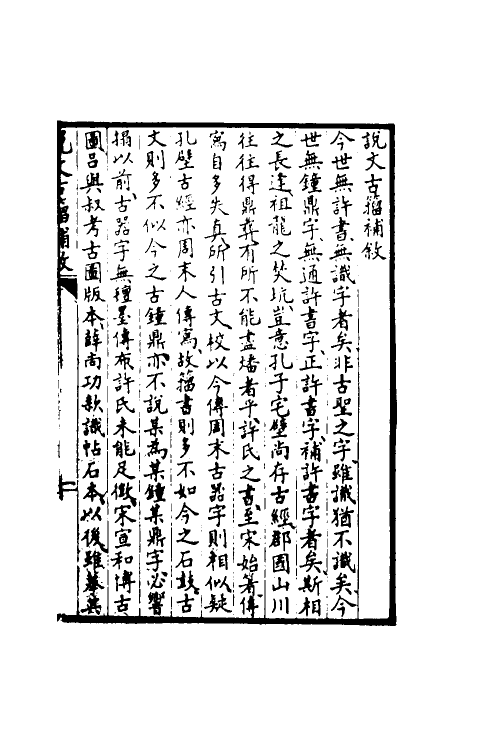 說文古籀補敘
今世無許書無識字者矣非古聖之字雖識猶不識矣今
世無鐘鼎字無通許書字正許書字補許書字者矣斯相
之長逢祖龍之焚坑豈意孔子宅壁尚存古經郡國山川
往往得鼎彝有所不能盡燔者乎許氏之書至宋始箸傳
寫自多失真所引古文校以今傳周末古器字則相似疑
孔壁古經亦周末人傳寫故籀書則多不如今之石鼓古
文則多不似今之古鐘鼎亦不說某為某鐘某鼎字必響
搨以前古器字無氈墨傳布許氏未能足徵宋宣和博古
圖呂與叔考古圖版本薛尚功款識帖石本以後雖摹其
說文古籀補敘